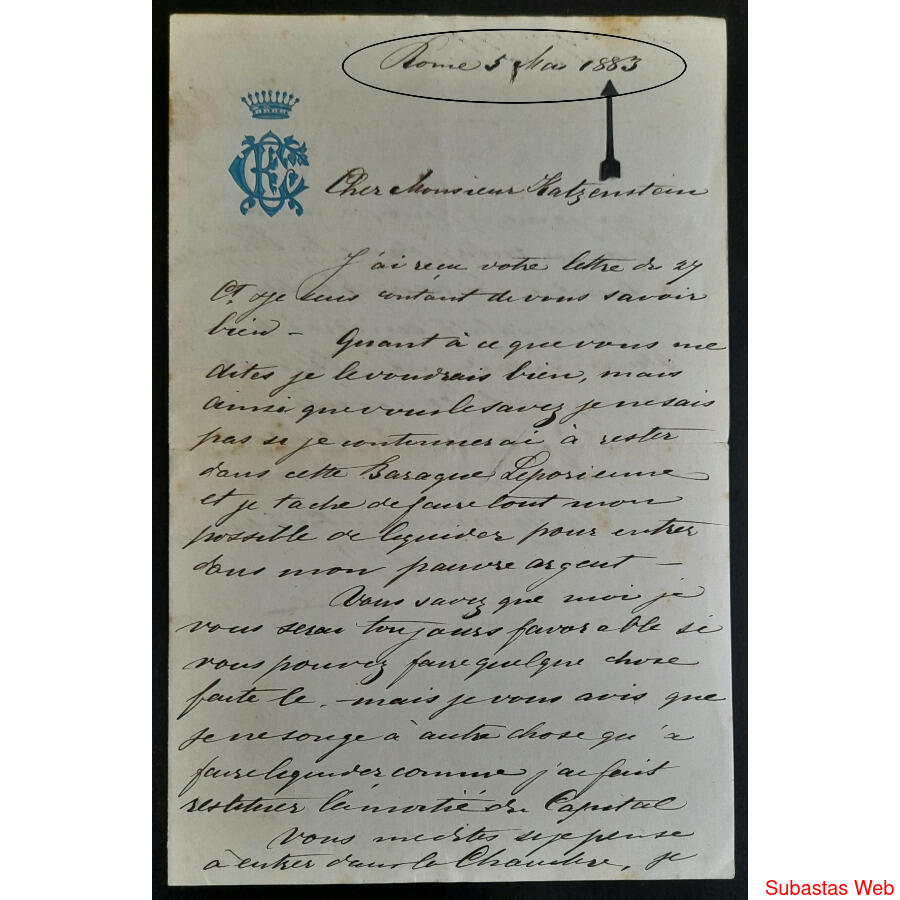 Rome 5 Mai 1883
Cher Monsieur Katzenstein
J'ai reçu votre lettre du 27
Ct. & je suis contant de vous savoir
bien — Quant à ce que vous me
dites je le voudrais bien, mais
ainsi que vous le savez je ne sais
pas si je continuerai à rester
dans cette Baraque
et je tache de faire tout mon
possible de liquider pour entrer
dans mon pauvre argent —
Vous savez que moi je
vous serai toujours favorable si
vous pouvez faire quelque chose
faite le. — mais je vous avis que
je ne songe à autre chose qu'a
faire liquider comme j'ai fait
restituer la moitié du Capital
Vous me dites si je pense
à entrer dans la Chambre, je
Subastas Web